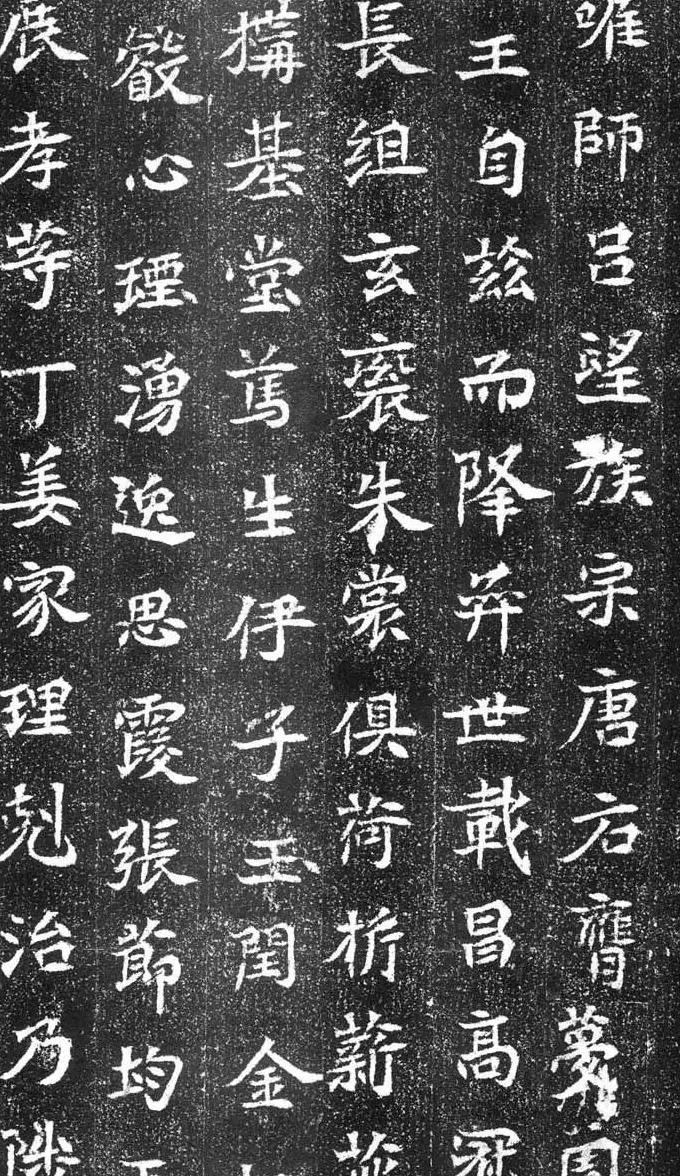 唯師呂望族宗唐右膺夢周
王自茲而降弈世載昌高冠
長組玄裘朱裳俱荷析薪並
搆基堂篤生伊子玉閏金
叡心堙湧逸思霞張節均
展孝等丁姜家理剋治乃